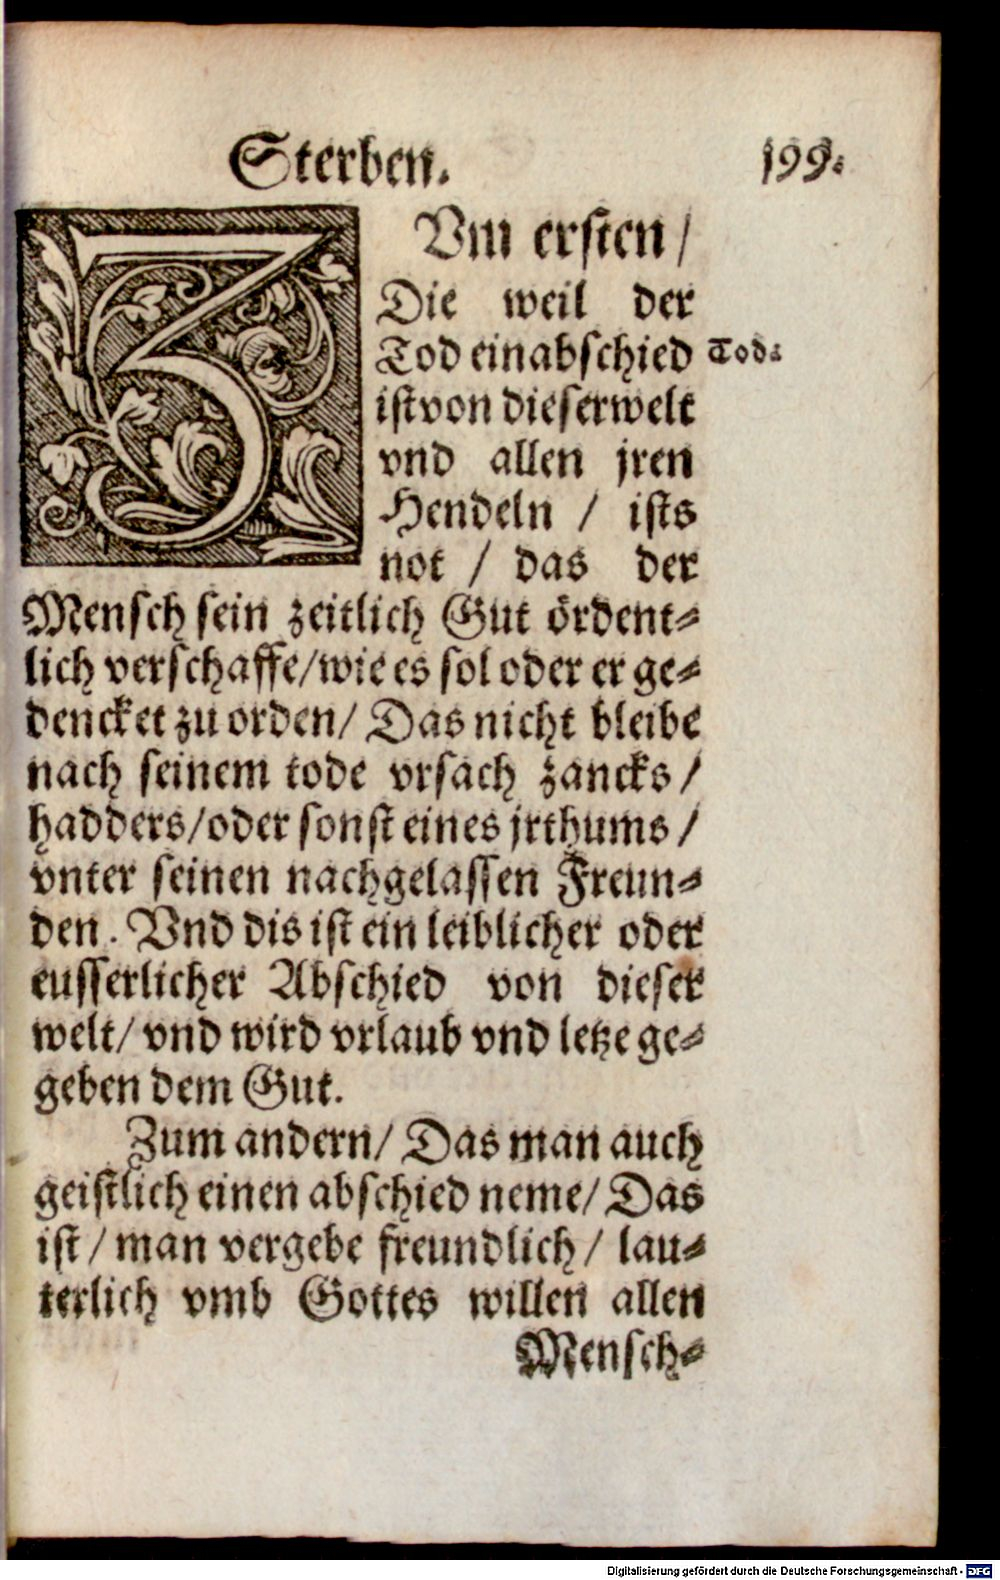 Sterben. 199.
ZVm ersten /
Die weil der
Tod ein abschied Tod.
ist von dieser welt
vnd allen jren
Hendeln / ists
not / das der
Mensch sein zeitlich Gut ördent-
lich verschaffe/wie es sol oder er ge-
dencket zu orden/ Das nicht bleibe
nach seinem tode vrsach zancks /
hadders/oder sonst eines jrthums /
vnter seinen nachgelassen Freun-
den. Vnd dis ist ein leiblicher oder
eusserlicher Abschied von dieser
welt/ vnd wird vrlaub vnd letze ge-
geben dem Gut.
Zum andern/ Das man auch
geistlich einen abschied neme/ Das
ist / man vergebe freundlich / lau-
terlich vmb Gottes willen allen
Mensch-
Digitalisierung gefördert durch die Deutsche Forschungsgemeinschaft - DFG